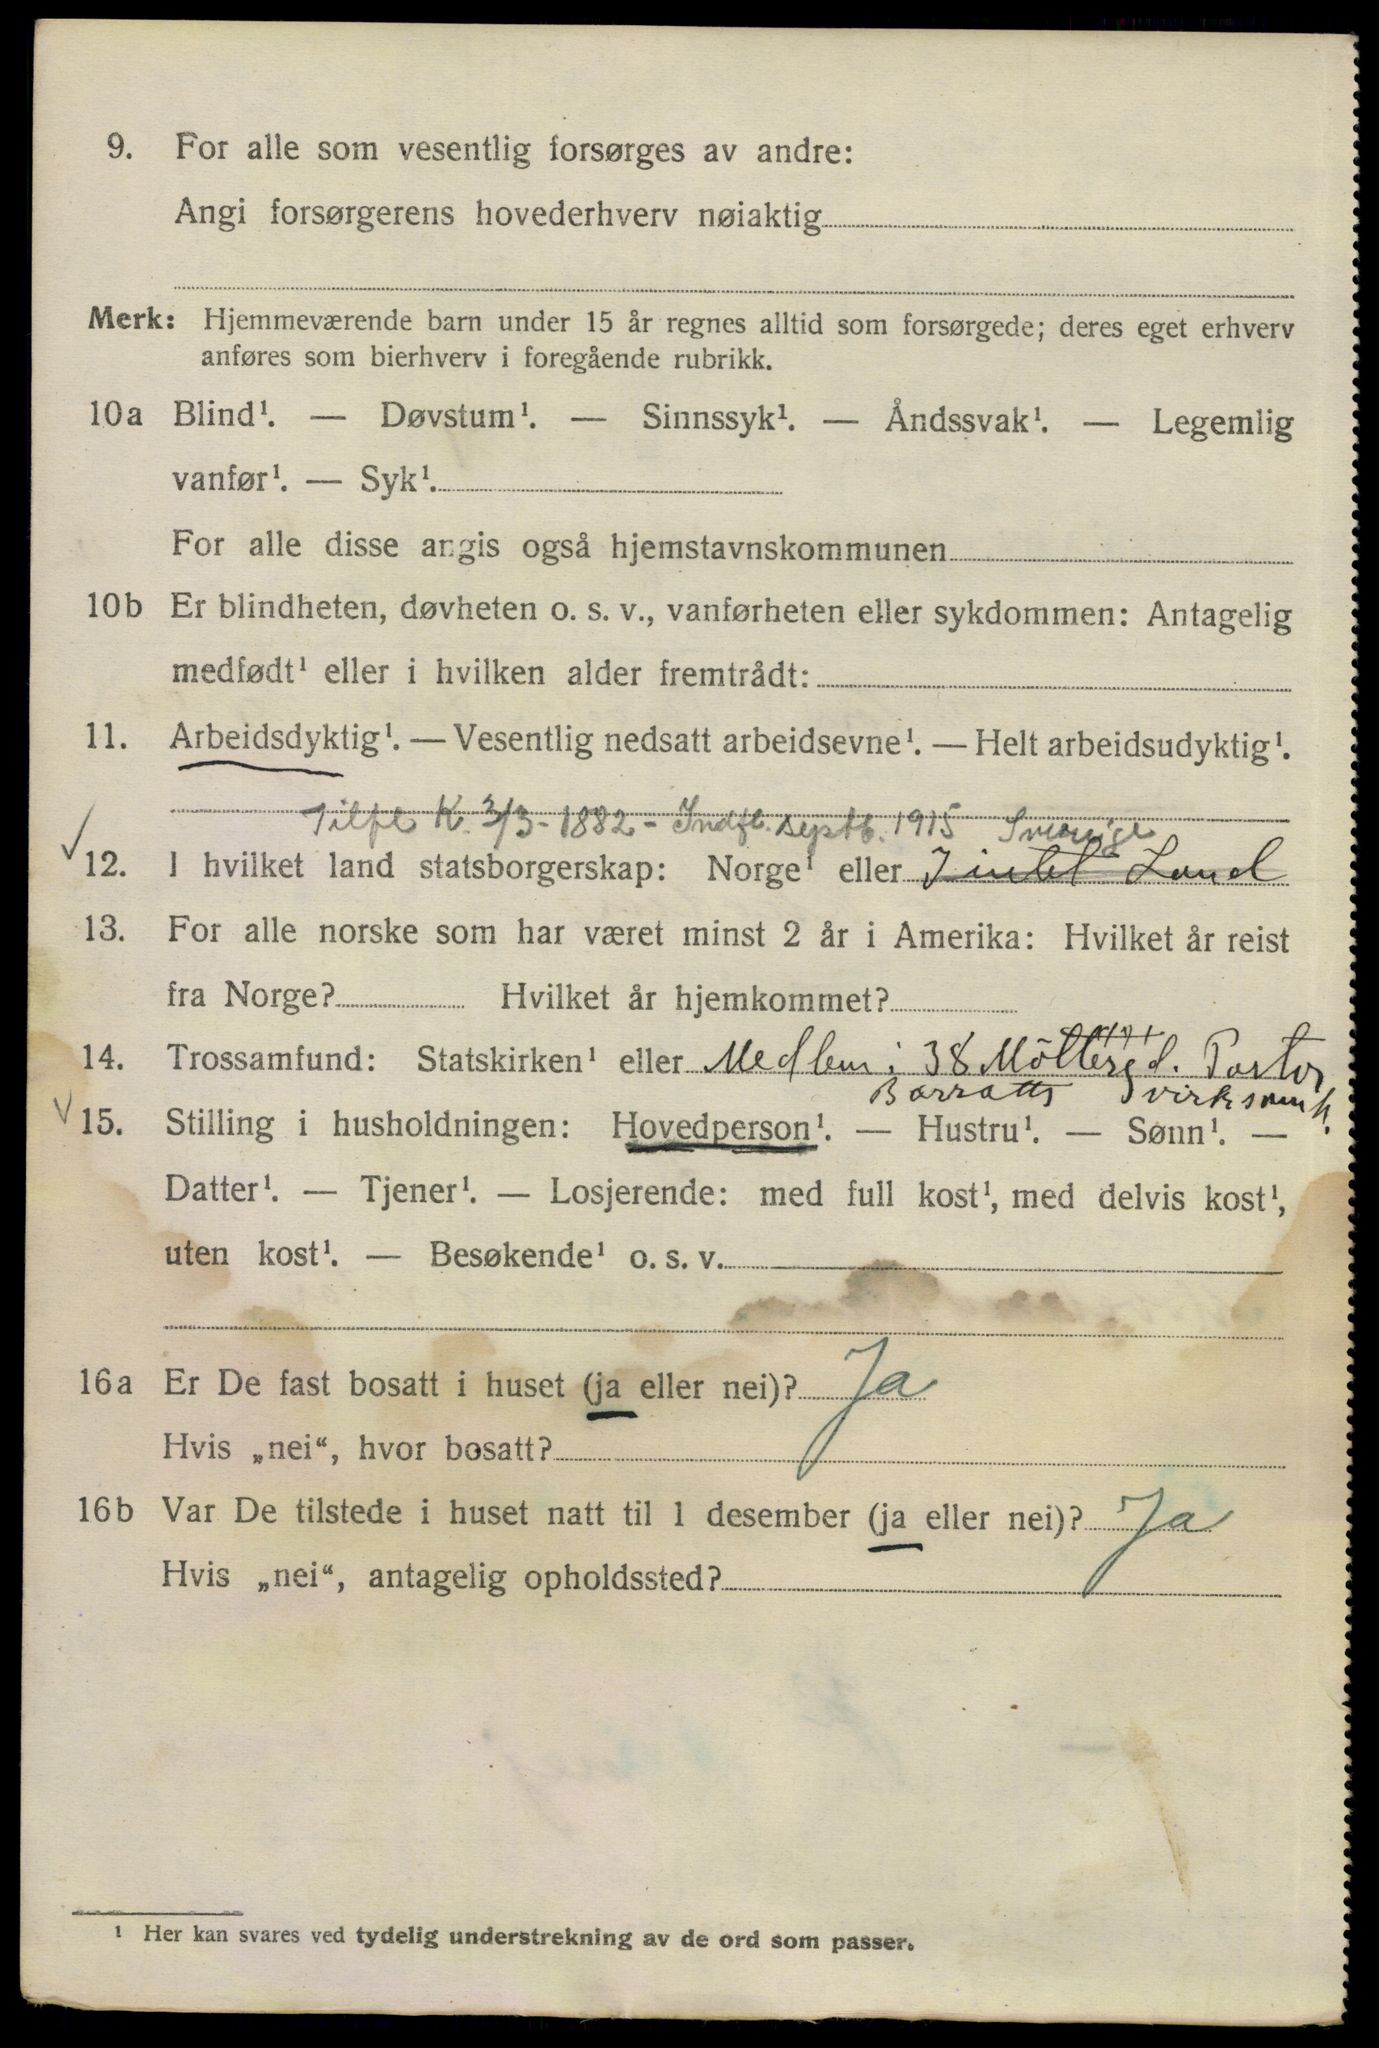 9. For alle som vesentlig forsørges av andre:
Angi forsørgerens hovederhverv nøiaktig
Merk: Hjemmeværende barn under 15 år regnes alltid som forsørgede; deres eget erhverv
anføres som bierhverv i foregående rubrikk.
10a Blind¹. — Døvstum¹. — Sinnssyk¹. — Åndssvak¹. — Legemlig
vanfør¹. — Syk¹.
For alle disse angis også hjemstavnskommunen
10b Er blindheten, døvheten o. s. v., vanførheten eller sykdommen: Antagelig
medfødt¹ eller i hvilken alder fremtrådt:
11. Arbeidsdyktig¹. — Vesentlig nedsatt arbeidsevne¹. — Helt arbeidsudyktig¹.
Tilfl K. 2/3-1882 - Indfl. septb. 1915 Sverige
12. I hvilket land statsborgerskap: Norge¹ eller I intet Land
13. For alle norske som har været minst 2 år i Amerika: Hvilket år reist
fra Norge? Hvilket år hjemkommet?
14. Trossamfund: Statskirken¹ eller Medlem i 38 Möllergd. Pastor
Barratts virksomh.
15. Stilling i husholdningen: Hovedperson¹. — Hustru¹. — Sønn¹. —
Datter¹. — Tjener¹. — Losjerende: med full kost¹, med delvis kost¹,
uten kost¹. — Besøkende¹ o. s. v.
16a Er De fast bosatt i huset (ja eller nei)? Ja
Hvis „nei“, hvor bosatt?
16b Var De tilstede i huset natt til 1 desember (ja eller nei)? Ja
Hvis „nei“, antagelig opholdssted?
¹ Her kan svares ved tydelig understrekning av de ord som passer.